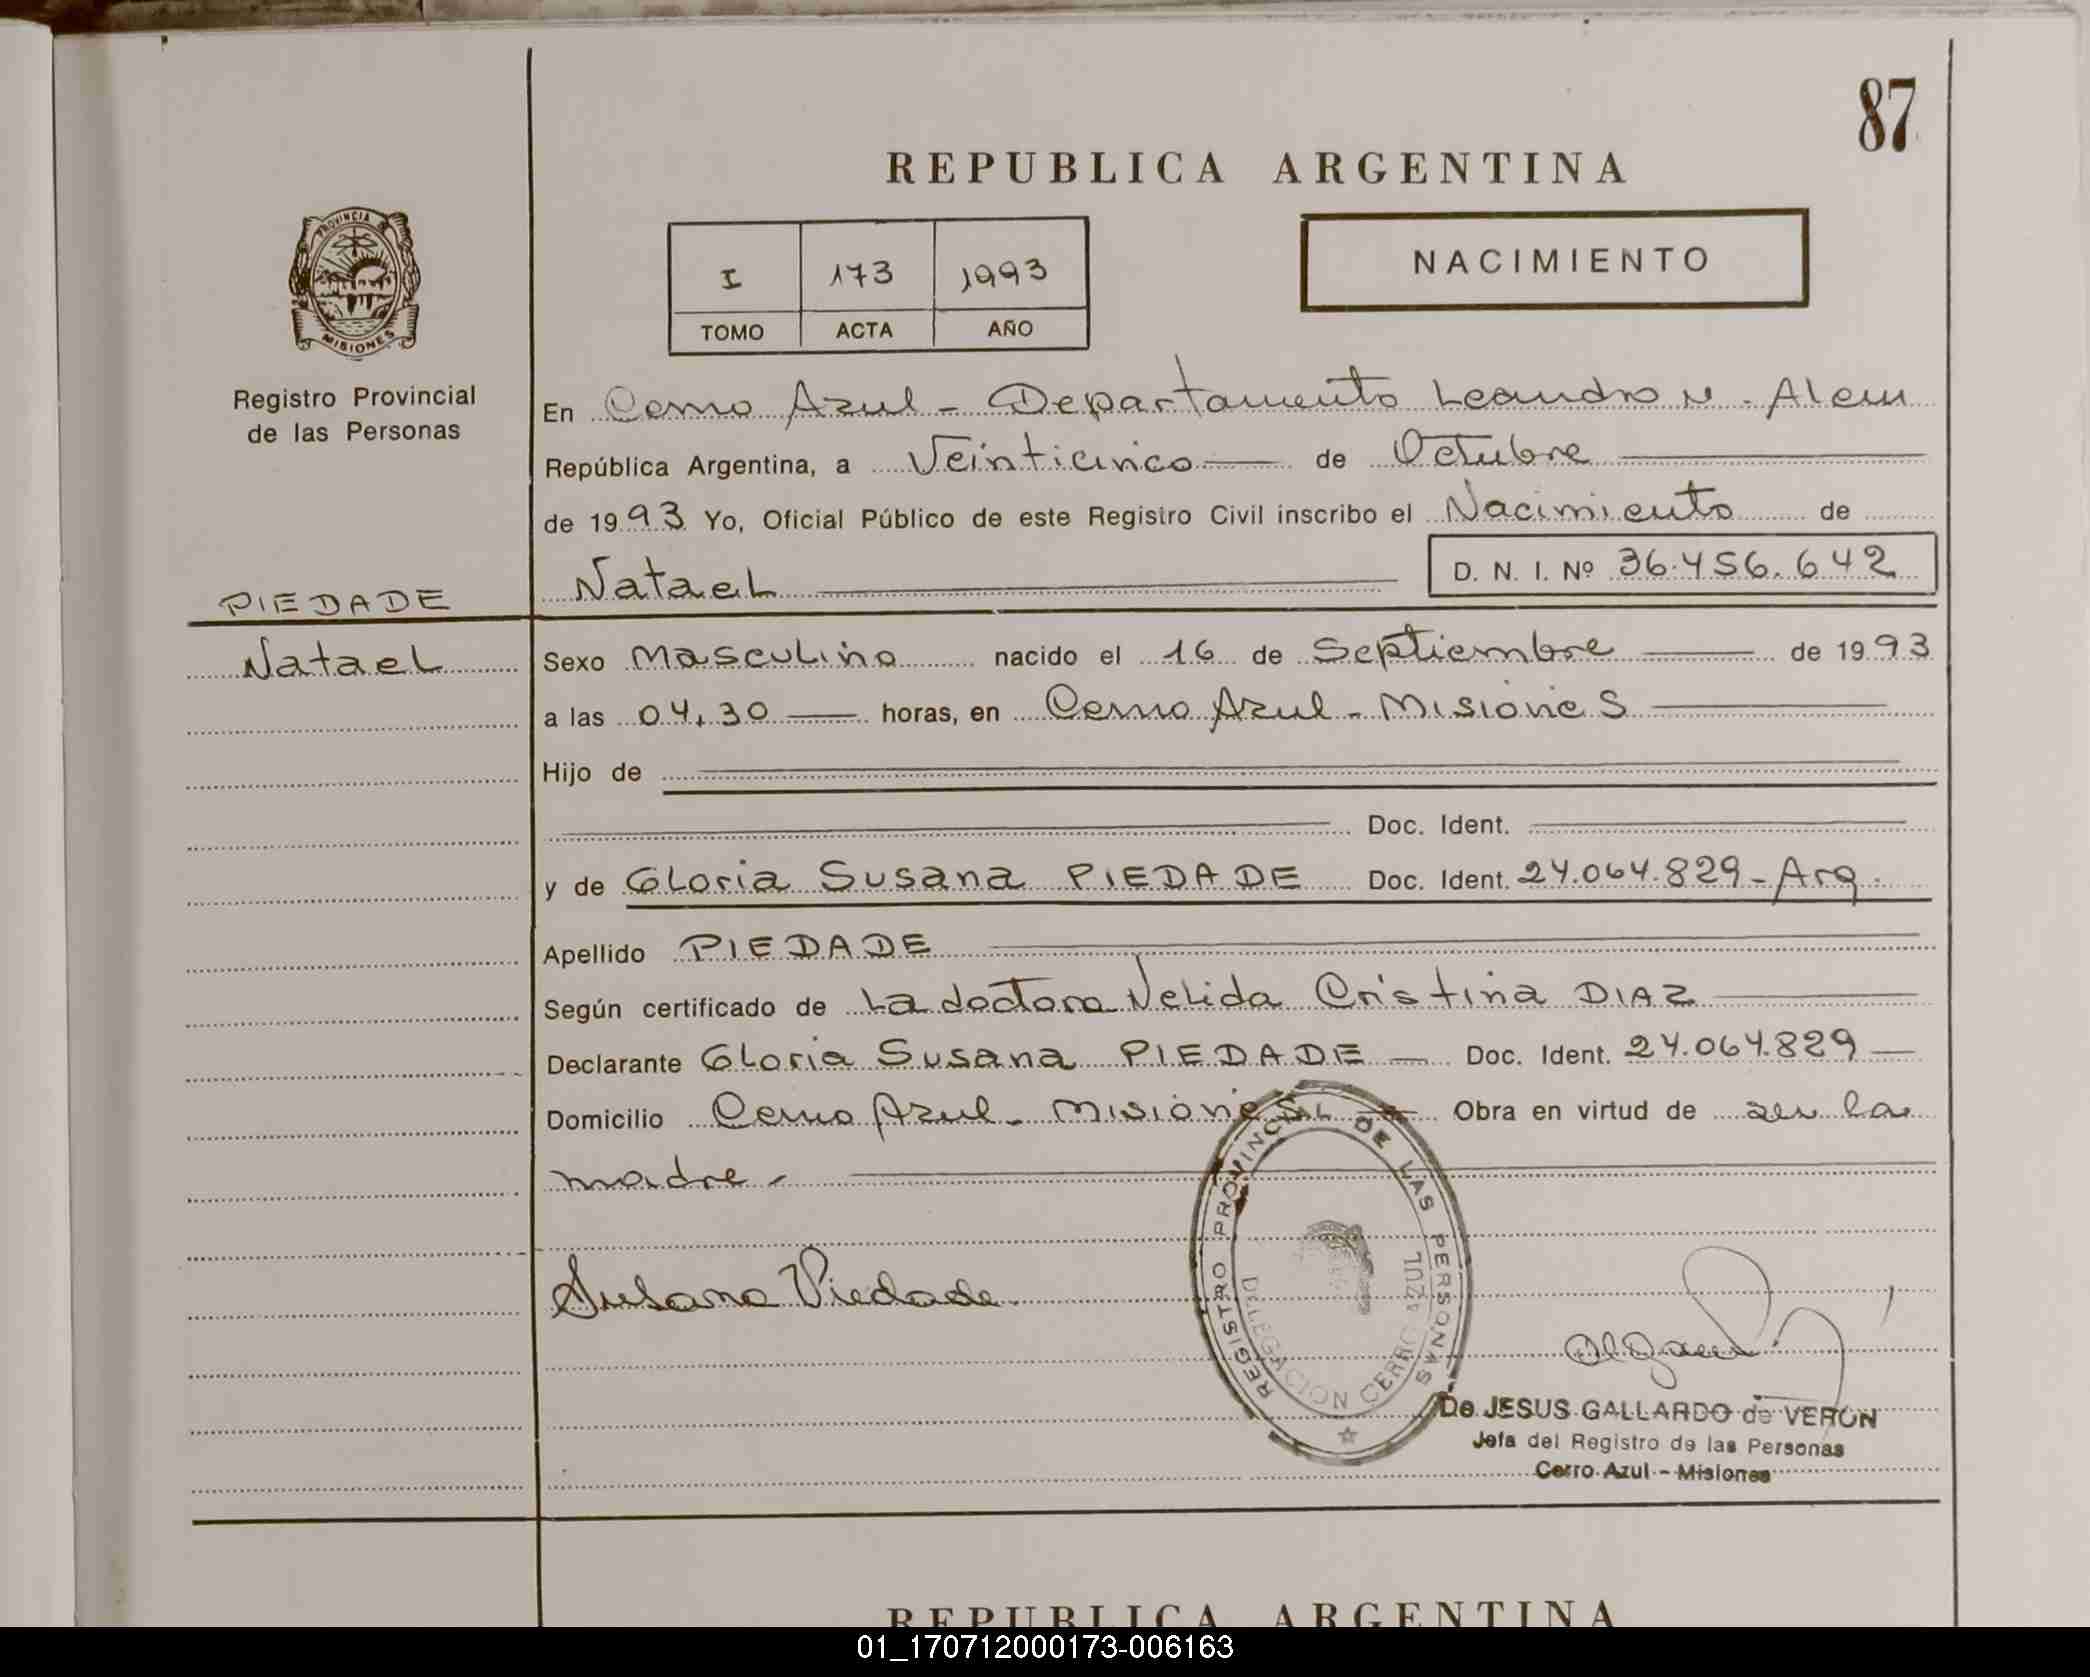 87
REPUBLICA ARGENTINA
PROVINCIA
MISIONES
I 173 1993
TOMO ACTA AÑO
NACIMIENTO
Registro Provincial
de las Personas
En Cerro Azul - Departamento Leandro N. Alem
República Argentina, a Veinticinco de Octubre
de 1993 Yo, Oficial Público de este Registro Civil inscribo el Nacimiento de
Natael D. N. I. Nº 36.456.642
PIEDADE
Natael
Sexo Masculino nacido el 16 de Septiembre de 1993
a las 04,30 horas, en Cerro Azul - Misiones
Hijo de
Doc. Ident.
y de Gloria Susana PIEDADE Doc. Ident. 24.064.829 - Arg.
Apellido PIEDADE
Según certificado de La doctora Nelida Cristina DIAZ
Declarante Gloria Susana PIEDADE Doc. Ident. 24.064.829
Domicilio Cerro Azul - Misiones Obra en virtud de ser la
madre.
REGISTRO PROVINCIAL DE LAS PERSONAS
DELEGACION CERRO AZUL
Susana Piedade
De JESUS GALLARDO de VERON
Jefa del Registro de las Personas
Cerro Azul - Misiones
REPUBLICA ARGENTINA
01_170712000173-006163